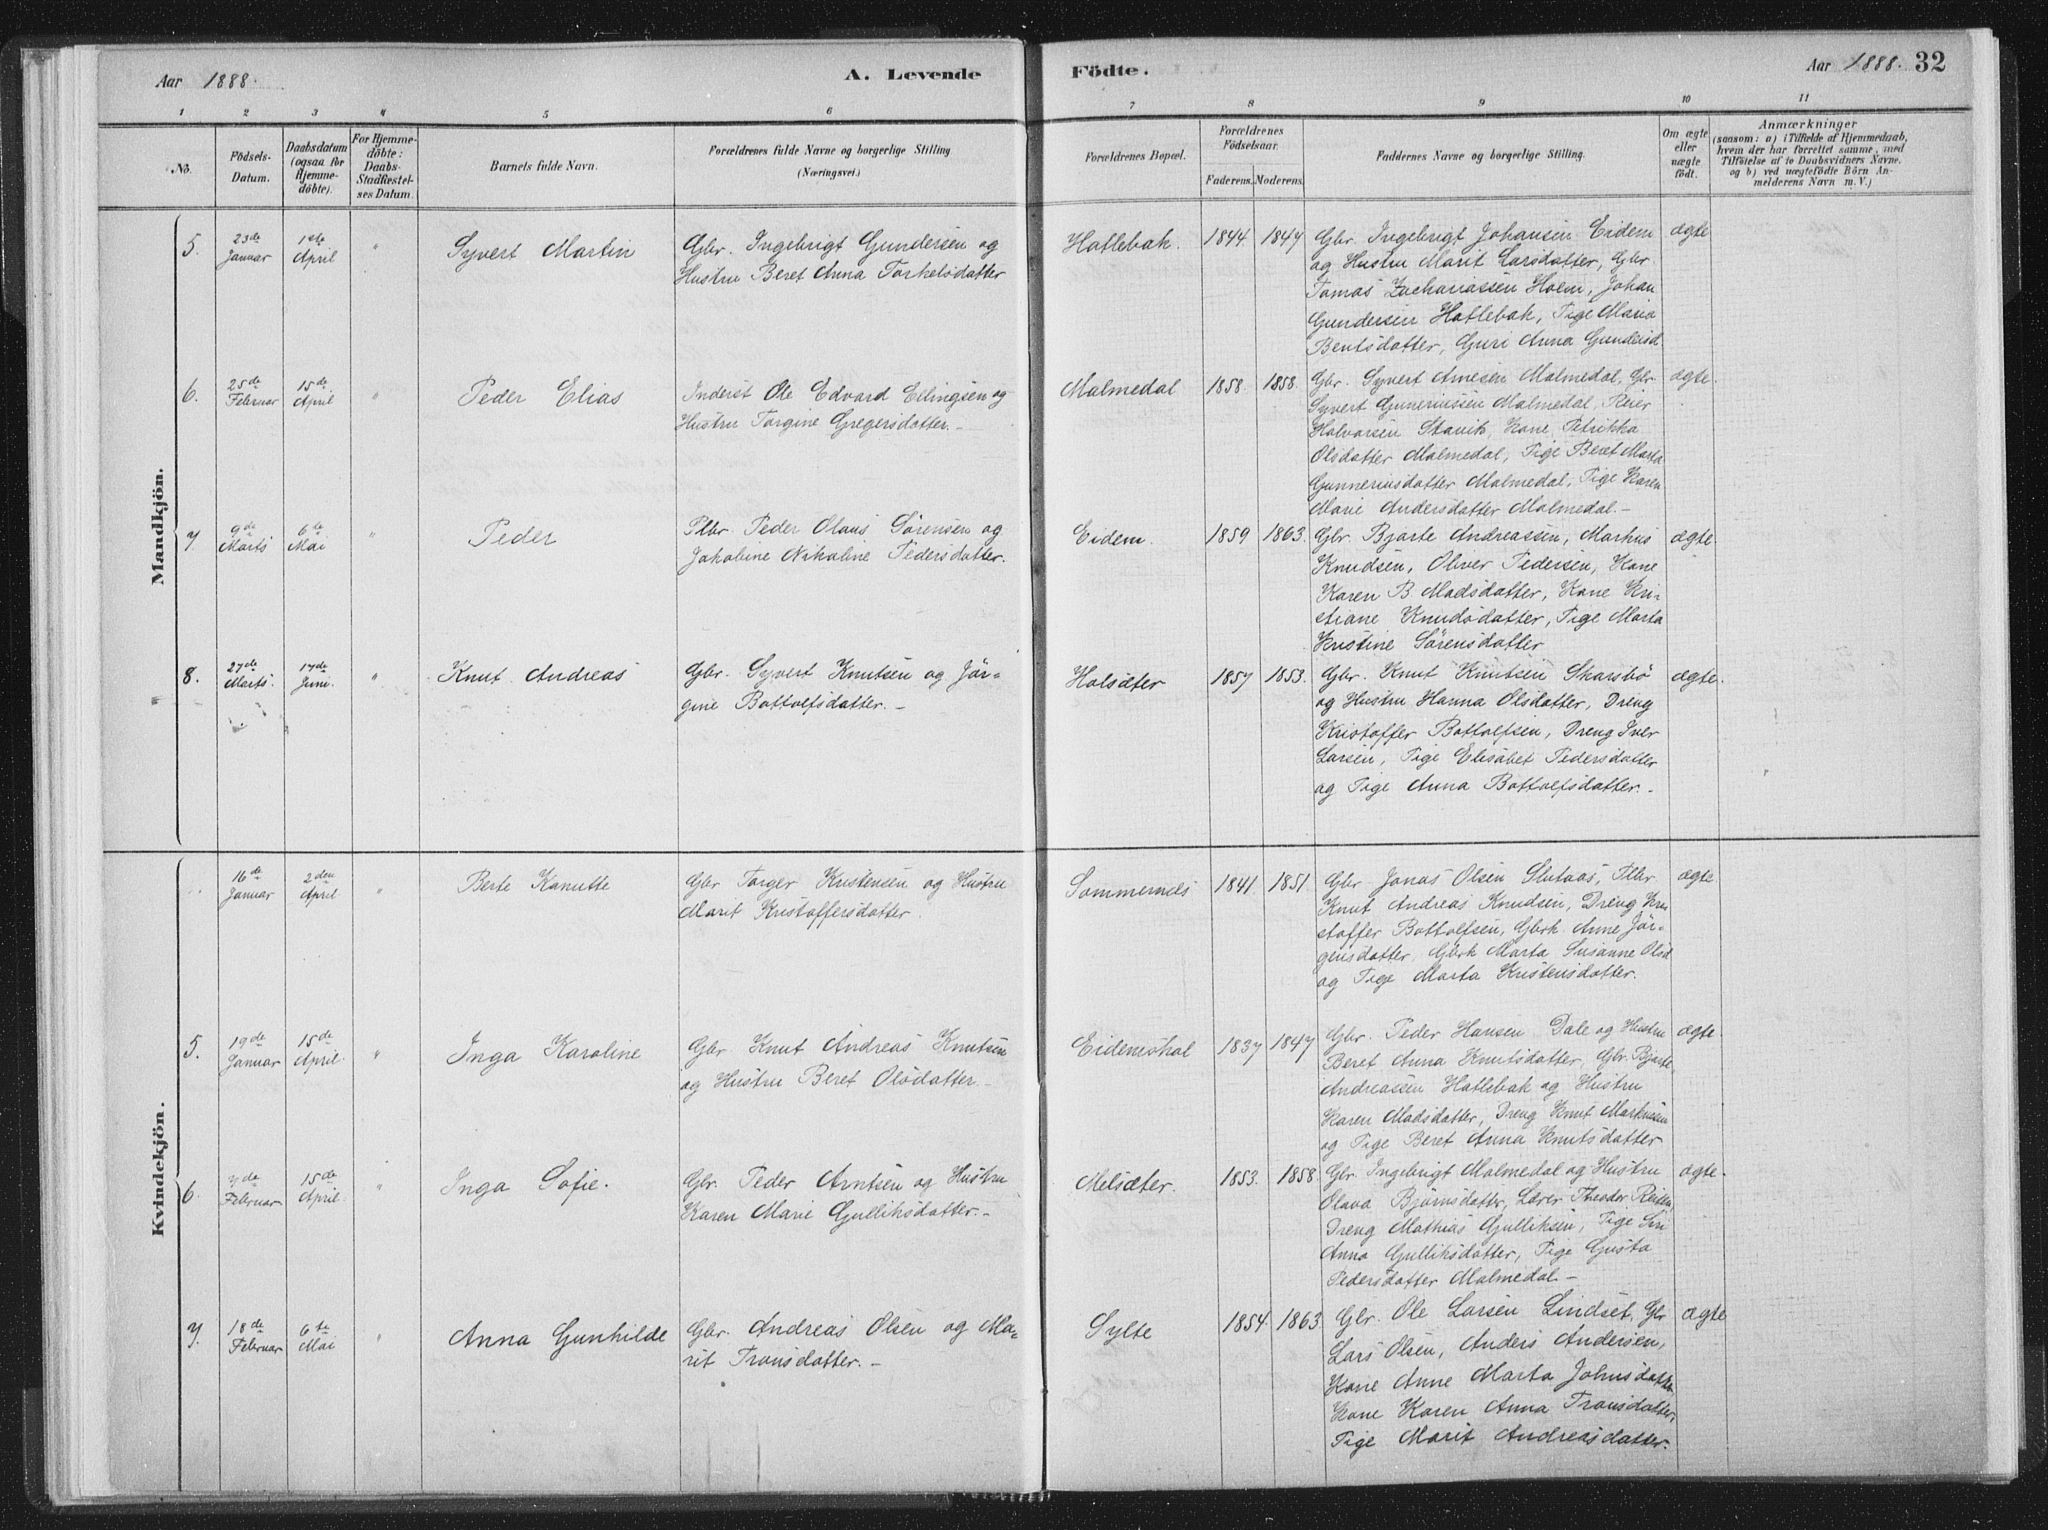 Aar 1888. A. Levende Födte. Aar 1888. 32
1 2 3 4 5 6 7 8 9 10 11
No. Födsels-Datum. Daabsdatum (ogsaa for Hjemme-döbte). For Hjemme-döbte: Daabs-Stadfæstel-ses Datum. Barnets fulde Navn. Forældrenes fulde Navne og borgerlige Stilling (Næringsvei.) Forældrenes Bopæl. Forældrenes Födselsaar. Faderens. Moderens. Faddernes Navne og borgerlige Stilling. Om ægte eller uægte födt. Anmærkninger
(saasom: a) i Tilfælde af Hjemmedaab, hvem der har forrettet samme, med Tilföielse af to Daabsvidners Navne, og b) ved uægtefödte Börn Anmelderens Navn m. V.)
Mandkjön.
5. 23de Januar 1ste April " Syvert Martin Gbr. Ingebrigt Gundersen og Hatlebak. 1844. 1847 Gbr. Ingebrigt Johansen Eidem ægte
Hustru Beret Anna Torkelsdatter og Hustru Marit Larsdatter, Gbr.
Tomas Zachariassen Holm, Johan
Gundersen Hatlebak, Pige Maria
Bentsdatter, Guri Anna Gundersd.
6. 25de Februar 15de April " Peder Elias Inderst Ole Edvard Ellingsen og Malmedal 1858. 1858. Gbr. Syvert Arnesen Malmedal, Gbr. ægte.
Hustru Torgine Gregersdatter. - Syvert Gunneriussen Malmedal, Reier
Halvorsen Stavik, Kone Petrikka
Olsdatter Malmedal, Pige Beret Marta
Gunneriusdatter Malmedal, Pige Karen
Marie Andersdatter Malmedal. -
7 9de Marts 6te Mai " Peder Plbr Peder Olaus Sörensen og Eidem. 1859 1863. Gbr. Bjarte Andreassen, Markus ægte.
Jakobine Nikoline Pedersdatter. Knudsen, Oliver Pedersen, Kone
Karen B Madsdatter, Kone Kri-
stiane Knudsdatter, Pige Marta
Kristine Sörensdatter
8. 27de Marts. 17de Juni. " Knut Andreas Gbr. Syvert Knutsen og Jör- Holsæter 1857 1853. Gbr. Knut Knutsen Skarsbö ægte.
gine Bottolfsdatter. - og Hustru Hanna Olsdatter, Dreng
Kristoffer Bottolfsen, Dreng Iver
Larsen, Pige Elisabet Pedersdatter
og Pige Anna Bottolfsdatter. -
Kvindekjön.
16de Januar 2den April " Berte Kanutte Gbr Torger Kristensen og Hustru Sommernes 1841 1851. Gbr Jonas Olsen Slutaas, Plbr ægte
Marit Kristoffersdatter. Knut Andreas Knudsen, Dreng Kri
stoffer Bottolfsen, Gbrk. Anne Jör-
gensdatter, Gbrk Marta Susanne Olsd
og Pige Marta Kristensdatter.
5. 19de Januar 15de April. " Inga Karoline Gbr Knut Andreas Knutsen Eidemshol 1837 1847 Gbr. Peder Hansen Dale og Hustru ægte.
og Hustru Beret Olsdatter. - Beret Anna Knutsdatter, Gbr Bjarte
Andreassen Hatlebak og Hustru
Karen Madsdatter, Dreng Knut Markussen
og Pige Beret Anna Knutsdatter
6. 7de Februar 15de April. " Inga Sofie. Gbr. Peder Arntsen og Hustru Melsæter. 1853. 1858. Gbr. Ingebrigt Malmedal og Hustru ægte.
Karen Marie Gulliksdatter. - Olava Björnsdatter, Lærer Theodor Reiten,
Dreng Mathias Gulliksen, Pige Siri
Anna Gulliksdatter, Pige Gusta
Pedersdatter Malmedal. -
7. 18de Februar 6te Mai " Anna Gunhilde Gbr. Andreas Olsen og Ma- Sylte 1854. 1863. Gbr. Ole Larsen Lindset, Gbr ægte
rit Tronsdatter. - Lars Olsen, Anders Andersen,
Kone Anne Marta Johnsdatter
Kone Karen Anna Tronsdatter,
Pige Marit Andreasdatter.